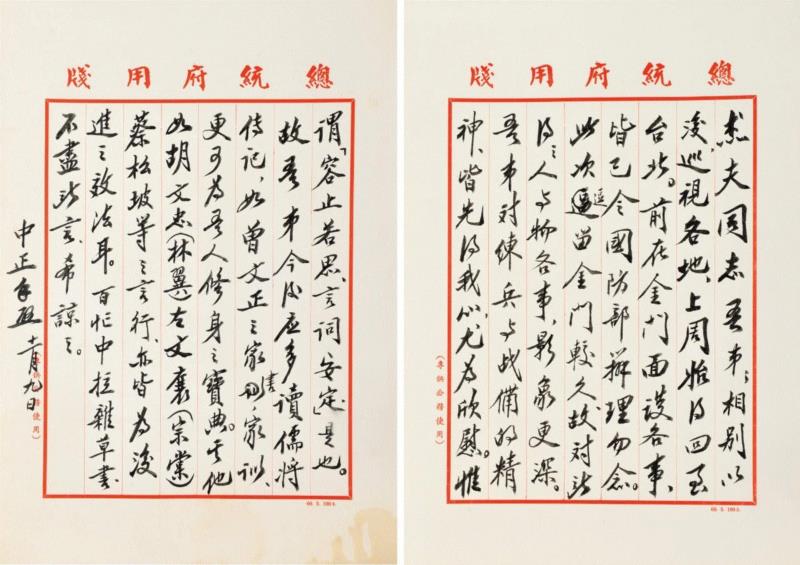 總統府用牋
杰夫同志吾弟:相別以
後,巡視各地,上周始得回至
台北。前在金門面談各事,
皆已令國防部辦理勿念。
此次逗留金門較久故對此
得之人与物各事,影象更深。
吾弟對練兵与战備的精
神、皆先得我心,尤為欣慰。惟
(專供公務使用)
總統府用牋
謂「容止若思、言詞安定」是也。
故吾弟今後应多讀儒將
傳記,如曾文正之家書家訓,
更可為吾人修身之寶典。其他
如胡文忠(林翼)左文襄(宗棠)
蔡松坡等之言行,亦皆為後
進之效法耳。百忙中拉雜草書
不盡所言、希諒之。
中正手啟 十一月九日
(專供公務使用)